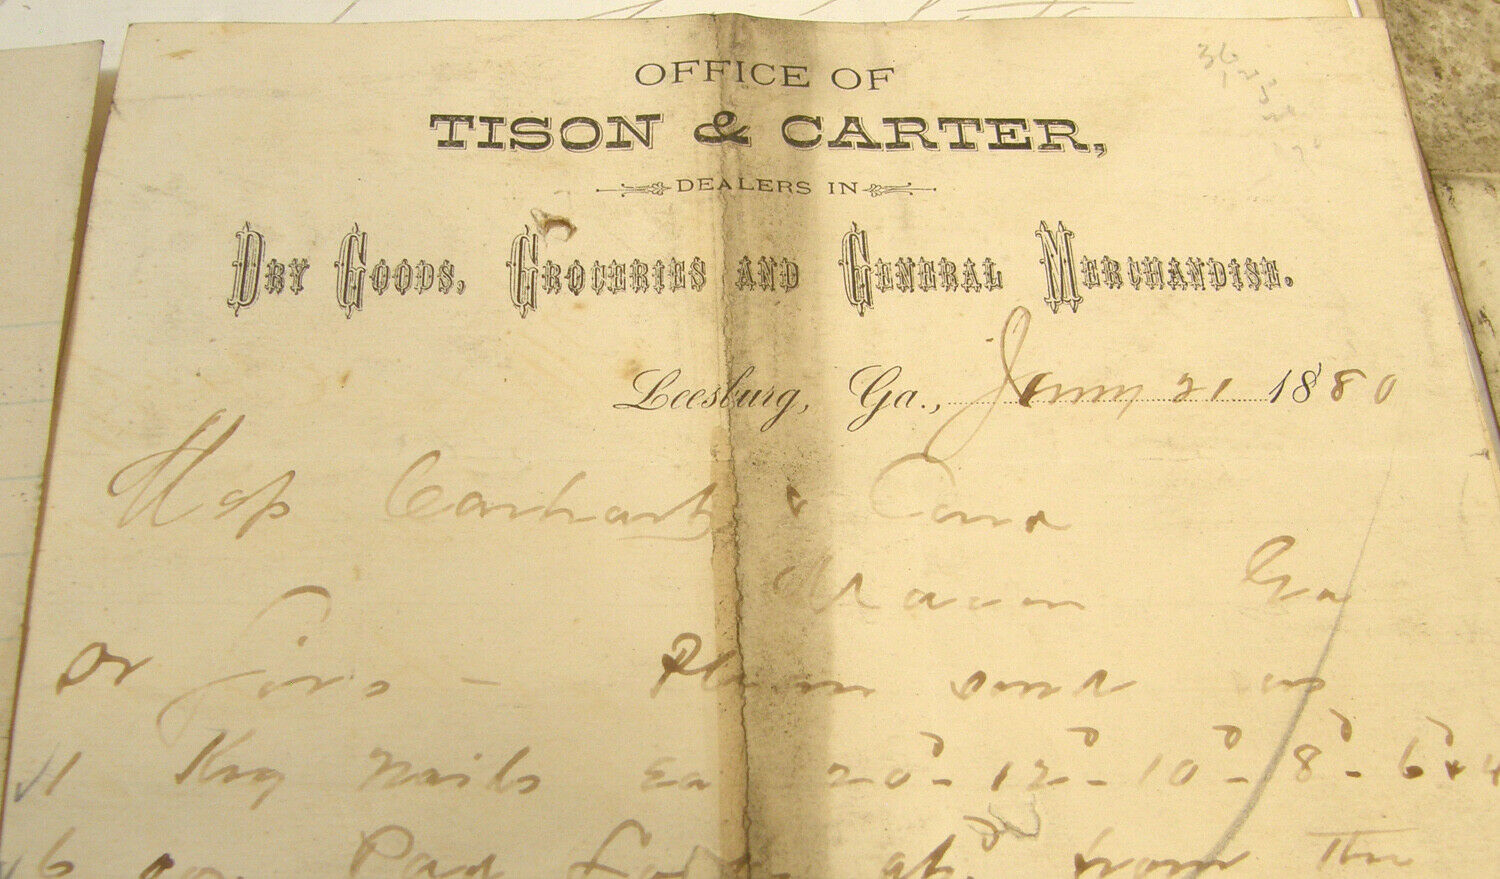 OFFICE OF
TISON & CARTER,
DEALERS IN
DRY GOODS, GROCERIES AND GENERAL MERCHANDISE.
Leesburg, Ga., Jany 21 1880
Carhart &
Macon Ga
Dr Sirs - Please send us
1 Keg Nails Ea 20d - 12d - 10d - 8d - 6d + 4
6 from the